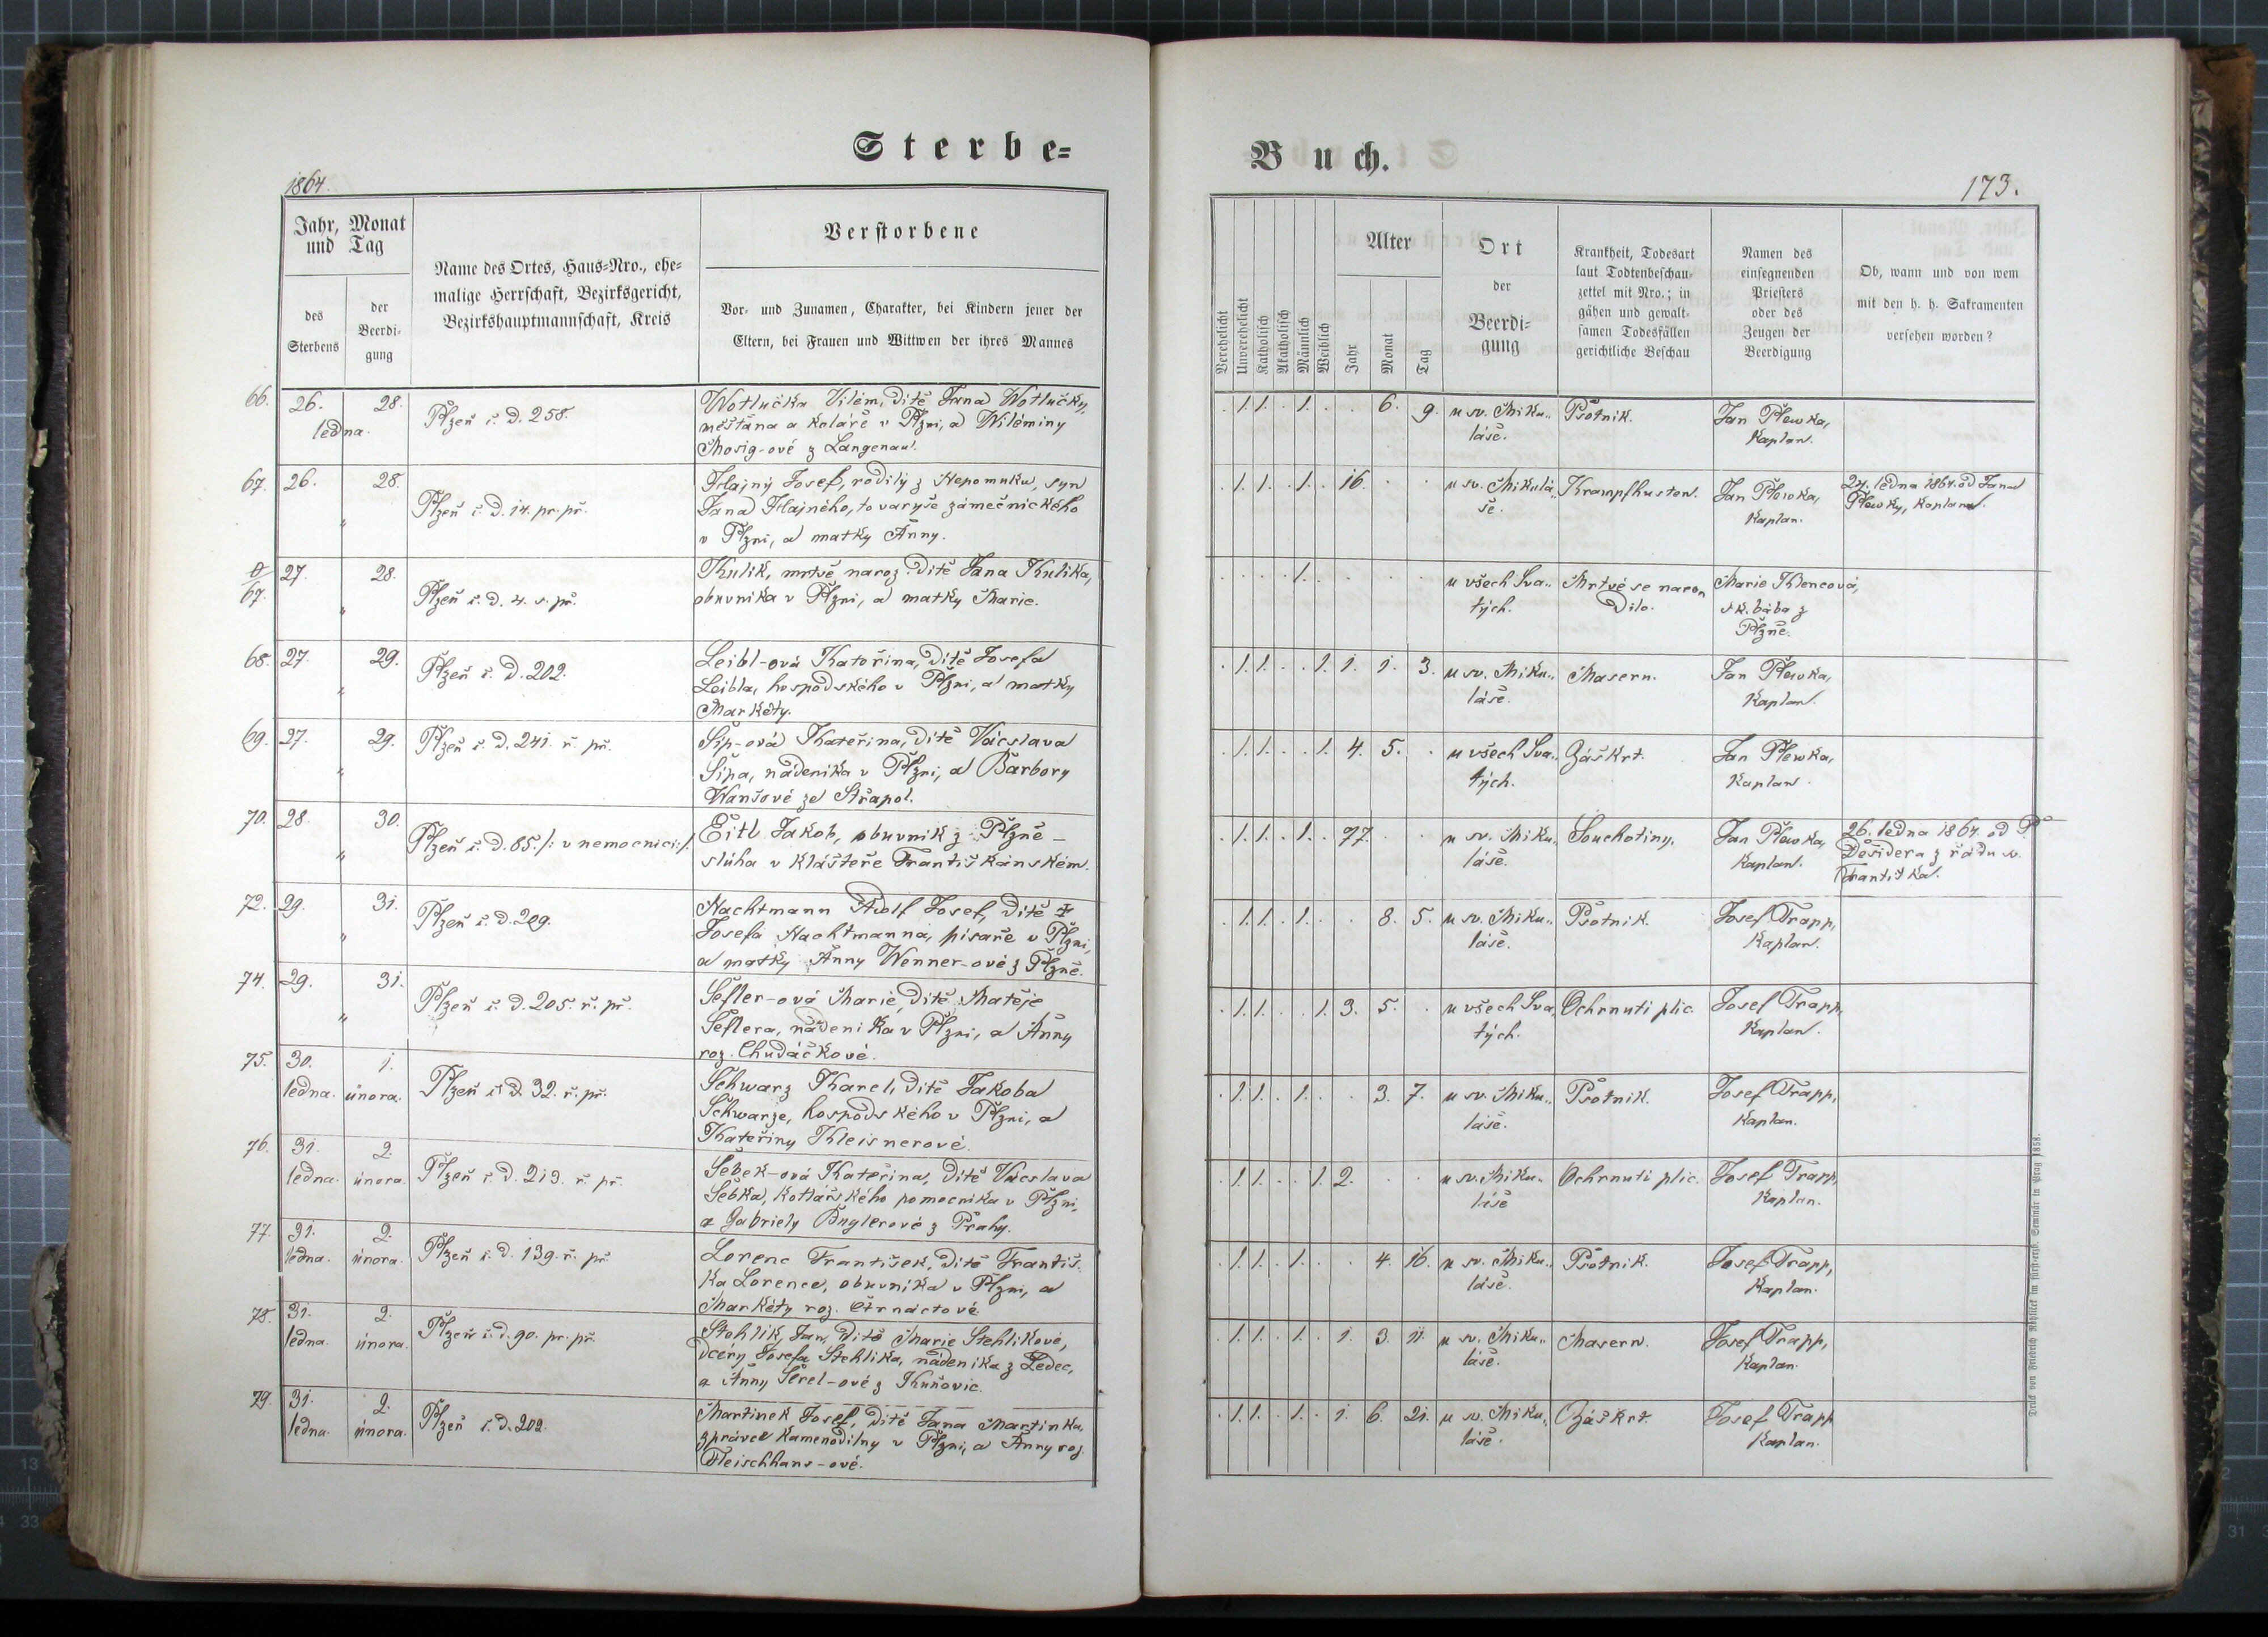 Sterbe=
1864.
Jahr, Monat
und Tag
des
Sterbens
der
Beerdi-
gung
Name des Ortes, Haus=Nro., ehe=
malige Herrschaft, Bezirksgericht,
Bezirkshauptmannschaft, Kreis
Verstorbene
Vor- und Zunamen, Charakter, bei Kindern jener der
Eltern, bei Frauen und Wittwen der ihres Mannes
66. 26. 28.
ledna.
Plzeň č. d. 258.
Wotlučka Vilém, dítě Jana Wotlučky,
měštana a koláře v Plzni, a Wiléminy
Mosig-ové z Langenau.
67. 26. 28.
"
Plzeň č. d. 14. pr. př.
Hajný Josef, rodilý z Nepomuku, syn
Jana Hajného, tovaryše zámečnického
v Plzni, a matky Anny.
0/67. 27. 28.
"
Plzeň č. d. 4. s. př.
Kulik, mrtvě naroz. dítě Jana Kulika,
obuvníka v Plzni, a matky Marie.
68. 27. 29.
"
Plzeň č. d. 202.
Leibl-ová Katořina, dítě Josefa
Leibla, hospodského v Plzni, a matky
Markéty.
69. 27. 29.
"
Plzeň č. d. 241. ř. př.
Šíp-ová Kateřina, dítě Václava
Šípa, nádeníka v Plzni, a Barbory
Wanšové ze Střapol.
70. 28. 30.
"
Plzeň č. d. 85. /: v nemocnici :/.
Eitl Jakob, obuvník z Plzně –
sluha v klášteře Františkánském.
72. 29. 31.
"
Plzeň č. d. 209.
Nachtmann Adolf Josef, dítě
Josefa Nachtmanna, písaře v Plzni,
a matky Anny Wenner-ové z Plzně.
74. 29. 31.
"
Plzeň č. d. 205. ř. př.
Šefler-ová Marie, dítě Matěje
Šeflera, nádeníka v Plzni, a Anny
roz. Chudáčkové.
75. 30. 1.
ledna. února.
Plzeň č. d. 32. ř. př.
Schwarz Karel, dítě Jakoba
Schwarze, hospodského v Plzni, a
Kateřiny Kleisnerové.
76. 31. 2.
ledna. února.
Plzeň č. d. 213. ř. př.
Šebek-ová Kateřina, dítě Václava
Šebka, kotlářského pomocníka v Plzni,
a Gabriely Englerové z Prahy.
77. 31. 2.
ledna. února.
Plzeň č. d. 139. ř. př.
Lorenc František, dítě Františ-
ka Lorence, obuvníka v Plzni, a
Markéty roz. Čtrnáctové.
78. 31. 2.
ledna. února.
Plzeň č. d. 90. pr. př.
Stehlík Jan, dítě Marie Stehlíkové,
dcery Josefa Stehlíka, nádeníka z Ledec,
a Anny Šerel-ové z Kuňovic.
79. 31. 2.
ledna. února.
Plzeň č. d. 202.
Martinek Josef, dítě Jana Martinka,
zprávce kamenodílny v Plzni, a Anny roz.
Fleischhans-ové.
Buch.
173.
Verehelicht
Unverehelicht
Katholisch
Akatholisch
Männlich
Weiblich
Alter
Jahr
Monat
Tag
Ort
der
Beerdi=
gung
Krankheit, Todesart
laut Todtenbeschau-
zettel mit Nro.; in
gähen und gewalt-
samen Todesfällen
gerichtliche Beschau
Namen des
einsegnenden
Priesters
oder des
Zeugen der
Beerdigung
Ob, wann und von wem
mit den h. h. Sakramenten
versehen worden?
. 1. 1. . 1. . . 6. 9. u sv. Miku- Psotník. Jan Plewka,
láše. Kaplan.
. 1. 1. . 1. . 16. . . u sv. Mikulá- Krampfhusten. Jan Plewka, 24. ledna 1864. od Jana
še. Kaplan. Plewky, Kaplana.
. . . . 1. . . . . u všech Sva- Mrtvé se naro- Marie Klencová,
tých. dilo. sk. bába z
Plzně.
. 1. 1. . . 1. 1. 1. 3. u sv. Miku- Masern. Jan Plewka,
láše. Kaplan.
. 1. 1. . . 1. 4. 5. . u všech Sva- Záškrt. Jan Plewka,
tých. Kaplan.
. 1. 1. . 1. . 77. . . u sv. Miku- Souchotiny. Jan Plewka, 26. ledna 1864. od P.
láše. Kaplan. Desidera z řádu sv.
Františka.
. 1. 1. . 1. . . 8. 5. u sv. Miku- Psotník. Josef Trapp,
láše. Kaplan.
. 1. 1. . . 1. 3. 5. . u všech Sva- Ochrnutí plic. Josef Trapp,
tých. Kaplan.
. 1. 1. . 1. . . 3. 7. u sv. Miku- Psotník. Josef Trapp,
láše. Kaplan.
. 1. 1. . . 1. 2. . . u sv. Miku- Ochrnutí plic. Josef Trapp,
láše Kaplan.
. 1. 1. . 1. . . 4. 16. u sv. Miku- Psotník. Josef Trapp,
láše. Kaplan.
. 1. 1. . 1. . 1. 3. 11. u sv. Miku- Masern. Josef Trapp,
láše. Kaplan.
. 1. 1. . 1. . 1. 6. 21. u sv. Miku- Záškrt. Josef Trapp
láše. Kaplan.
Druck von Friedrich Rohliček im fürsterzb. Seminär in Prag 1858.